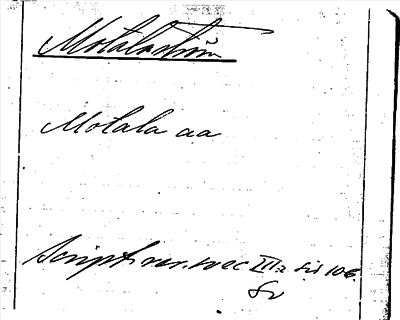 Motala ström
Motala aa
Script. rer. svec III:2 sid 106.
Sv